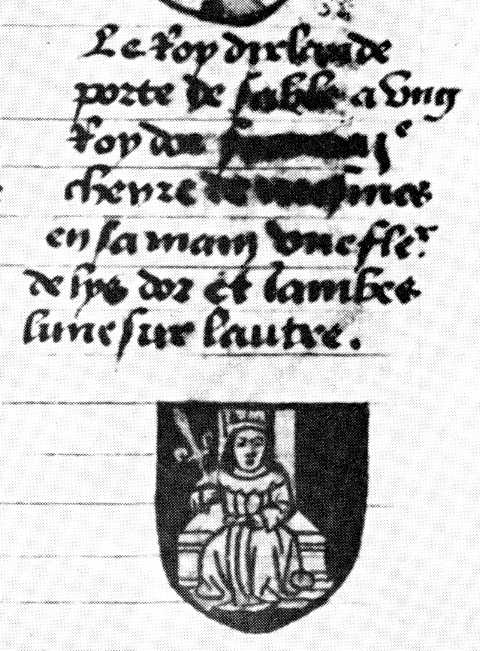 Le Roy dirlande
porte de sable a vng
Roy dor
cheyre de
en sa main vne fler
de lys dor et Iambes
lune sur lautre.